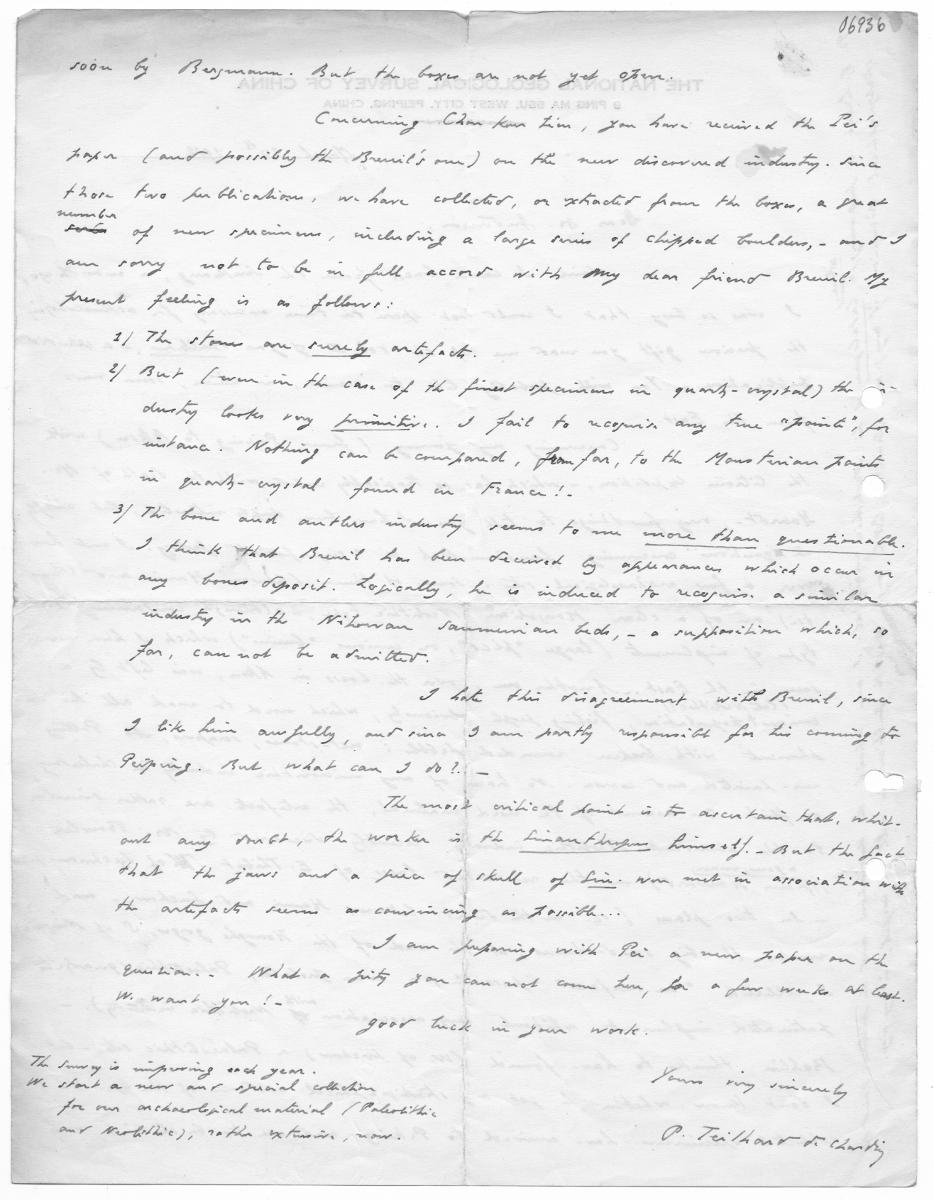 06936
soon by Bergmann. But the boxes are not yet open.
THE NATIONAL GEOLOGICAL SURVEY OF CHINA
9 PING MA SSU, WEST CITY, PEIPING, CHINA
Concerning Chou kou tien, you have received the Pei's
paper (and possibly the Breuil's one) on the new discovered industry. Since
those two publications, we have collected, or extracted from the boxes, a great
number
series of new specimens, including a large series of chipped boulders, - and I
am sorry not to be in full accord with my dear friend Breuil. My
present feeling is as follows:
1) The stones are surely artefacts.
2) But (even in the case of the finest specimens in quartz-crystal) the in-
dustry looks very primitive. I fail to recognise any true "points", for
instance. Nothing can be compared, from far, to the Mousterian points
in quartz-crystal found in France! -
3) The bone and antlers industry seems to me more than questionable.
I think that Breuil has been deceived by appearances which occur in
any bones deposit. Logically, he is induced to recognise a similar
industry in the Nihowan sanmenian beds, - a supposition which, so
far, can not be admitted.
I hate this disagreement with Breuil, since
I like him awfully, and since I am partly responsible for his coming to
Peiping. But what can I do?. -
The most critical point is to ascertain that, whit-
out any doubt, the worker is the Sinanthropus himself. - But the fact
that the jaws and a piece of skull of Sin. were met in association with
the artefacts seems as convincing as possible...
I am preparing with Pei a new paper on the
question. - What a pity you can not come here, for a few weeks at least.
We want you! -
Good luck in your work.
Yours very sincerely
P. Teilhard de Chardin
The Survey is improving each year.
We start a new and special collection
for our archaeological material (Paleolithic
and Neolithic), rather extensive, now.